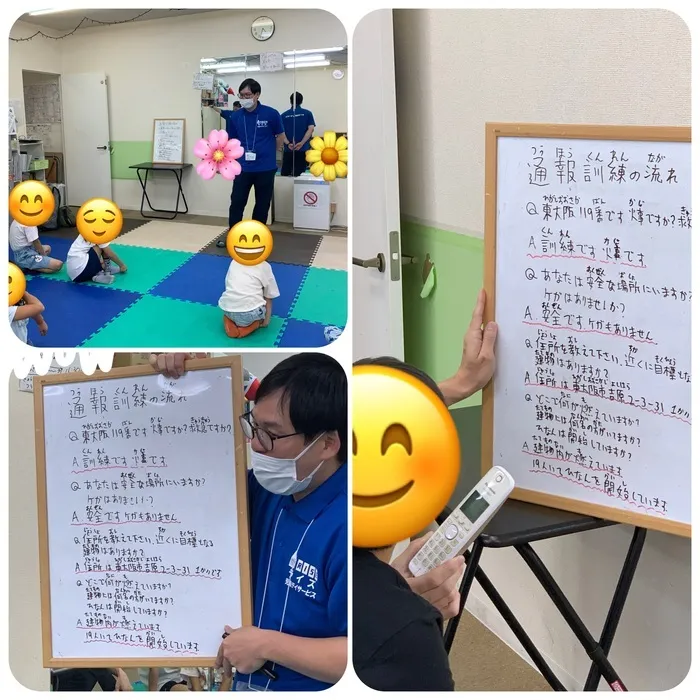 通報訓練の流れ
Q 東大阪119番です 火事ですか?救急ですか?
A 訓練です 火事です
Q あなたは安全な場所にいますか?
ケガはありませんか?
A 安全です ケガもありません
Q 住所を教えて下さい。近くに目標となる
建物はありますか?
A 住所は東大阪市吉原2-3-31 まかりです
Q どこで何が燃えていますか?
建物には何名の方がいますか?
ひなんは開始していますか?
A 建物内が燃えています
19人いてひなんを開始しています
通報訓練の流れ
Q 東大阪119番です 火事ですか?救
A 訓練です 火事です
Q あなたは安全な場所にいますか?
ケガはありませんか?
A 安全です ケガもありません
Q 住所を教えて下さい。近くに目標
建物はありますか?
A 住所は東大阪市吉原2-3-31
Q どこで何が燃えていますか?
建物には何名の方がいますか?
ひなんは開始していますか?
A 建物内が燃えています
19人いてひなんを開始しています